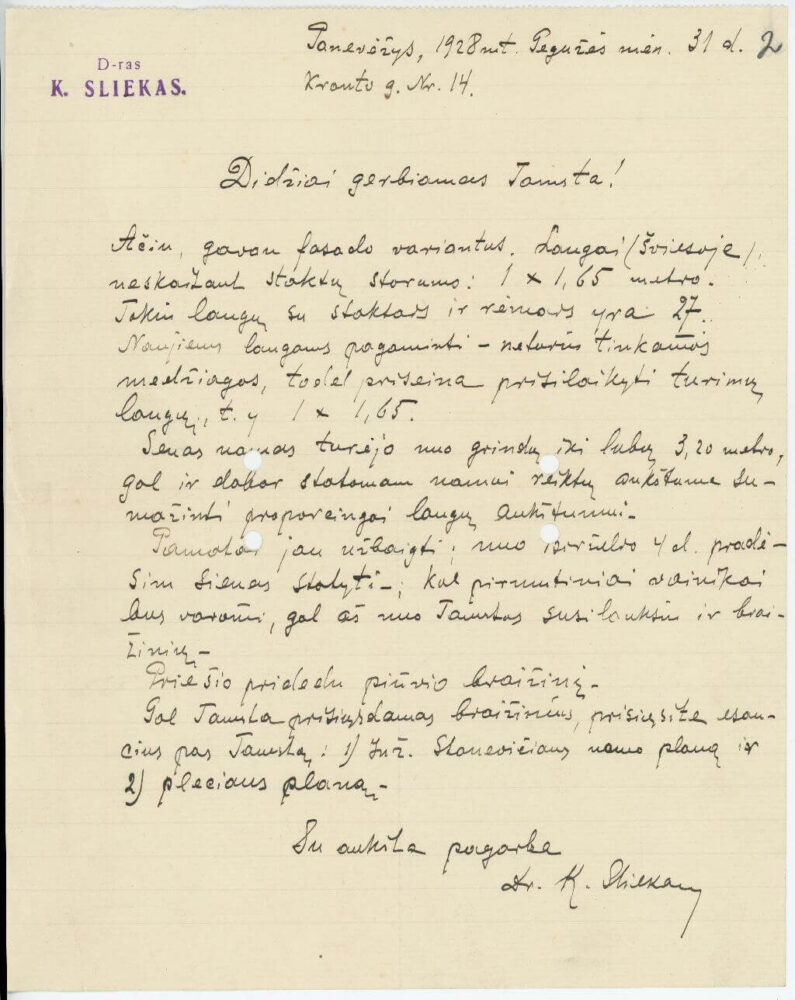 D-ras
K. SLIEKAS.
Panevėžys, 1928 mt. Gegužės mėn. 31 d. 2
Kranto g. Nr. 14.
Didžiai gerbiamas Tamsta!
Ačiu, gavau fasado variantus. Langai (šviesoje),
neskaitant staktų storumo: 1 x 1,65 metro.
Tokiu langų su staktais ir rėmais yra 27.
Naujiems langams pagaminti – neturiu tinkamos
medžiagos, todel priseina prisilaikyti turimų
langų, t. y 1 x 1,65.
Senas namas turėjo nuo grindų iki lubų 3,20 metro,
gal ir dabar statomam namui reiktų aukštuma su-
mažinti proporcingai langų aukštumui.
Pamatai jau užbaigti; nuo birželio 4 d. pradė-
sim sienas statyti –; kol pirmutiniai vainikai
bus varomi, gal aš nuo Tamstos susilauksiu ir brai-
žinių. –
Prie šio pridedu piuvio braižinį. –
Gal Tamsta prisiųsdamas braižinius, prisiųsite esan-
cius pas Tamstą: 1) Inž. Stanevičiaus namo planą ir
2) pleciaus planą. –
Su aukšta pagarba
Dr. K. Sliekas